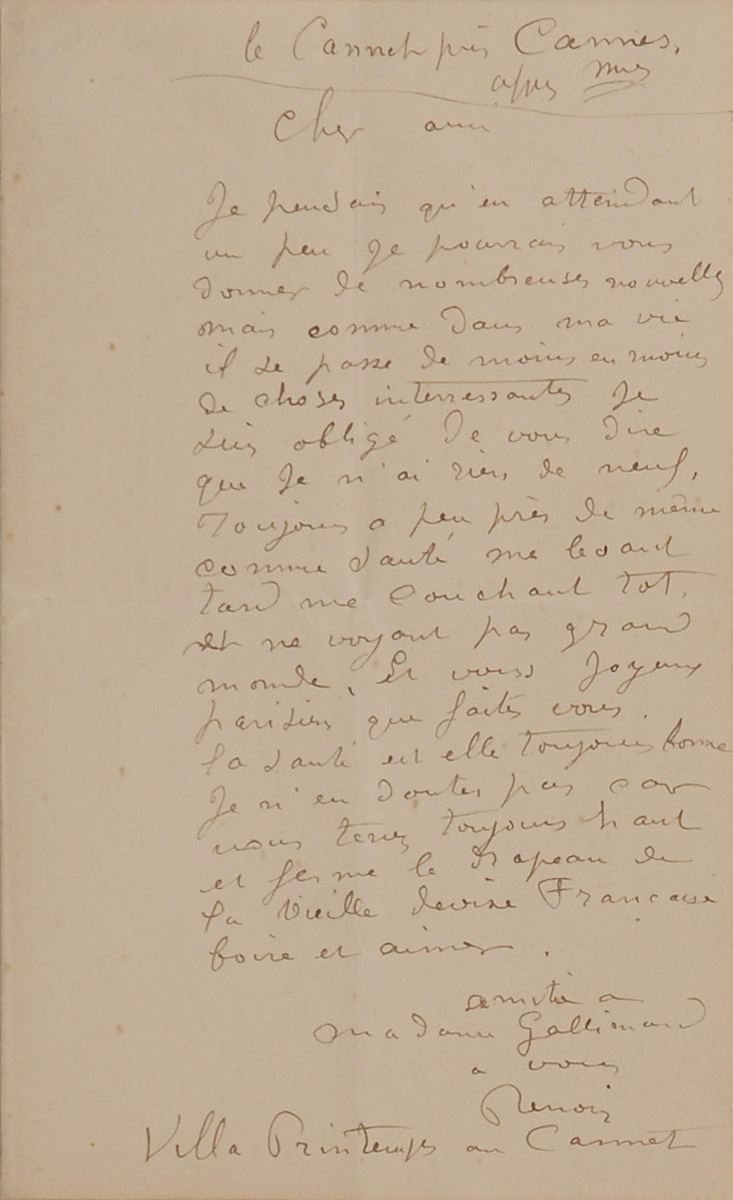 le Cannet près Cannes,
alpes mes
Cher ami
Je pensais qu'en attendant
un peu Je pourrais vous
donner de nombreuses nouvelles
mais comme dans ma vie
il se passe de moins en moins
de choses interressantes Je
suis obligé de vous dire
que Je n'ai rien de neuf,
Toujours a peu près de même
comme santé, me levant
tard me couchant tot,
et ne voyant pas grand
monde, Et vous Joyeux
parisien que faites vous.
la santé est elle toujours bonne
Je n'en doutes pas car
vous tenez toujours haut
et ferme le drapeau de
la Vieille devise Française
boire et aimer.
amitié a
madame Gallimard
a vous
Renoir
Villa Printemps au Cannet